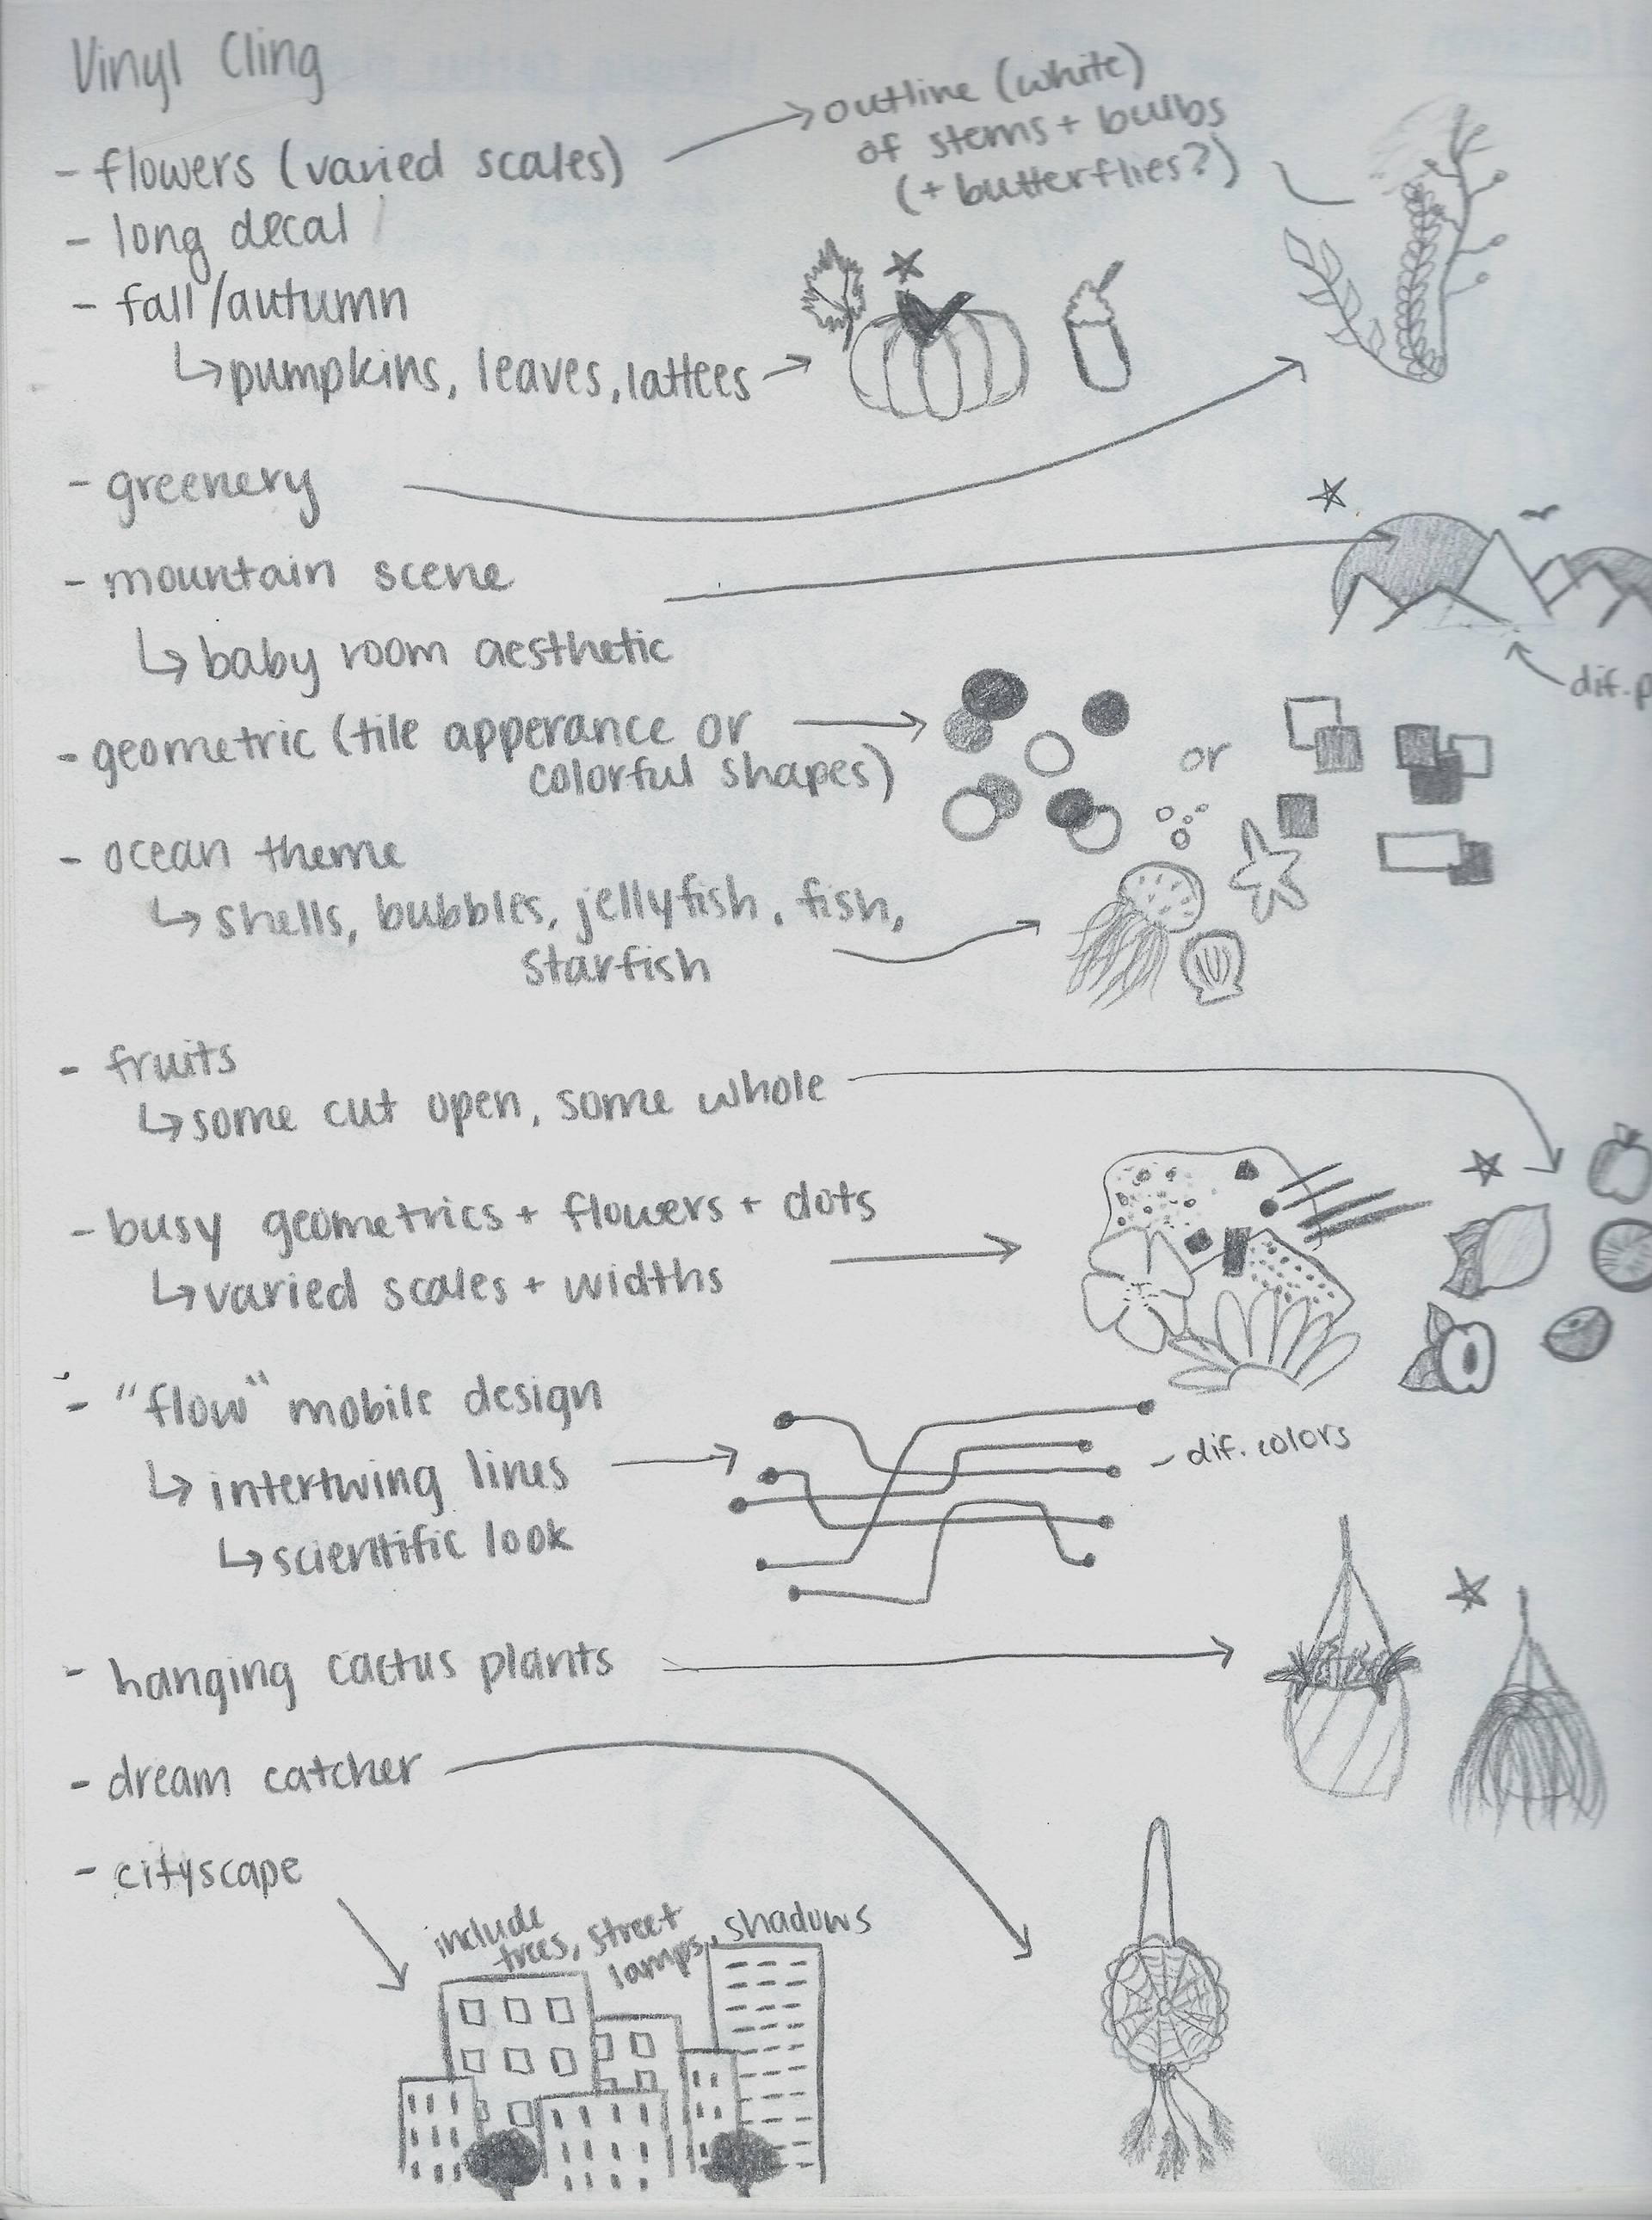 Vinyl Cling
- flowers (varied scales)
outline (white)
of stems + bulbs
(+ butterflies?)
- long decal
- fall/autumn
pumpkins, leaves, lattees
- greenery
- mountain scene
baby room aesthetic
dif.
- geometric (tile apperance or
colorful shapes)
or
- ocean theme
shells, bubbles, jellyfish, fish,
starfish
- fruits
some cut open, some whole
- busy geometrics + flowers + dots
varied scales + widths
- "flow" mobile design
intertwing lines
- dif. colors
scientific look
- hanging cactus plants
- dream catcher
- cityscape
include
trees, street
lamps, shadows